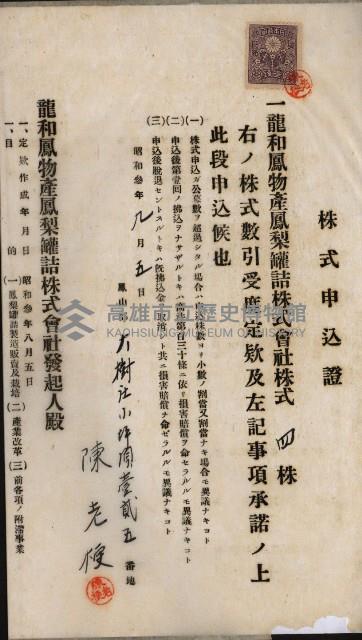 株式申込證
一龍和鳳物産鳳梨罐詰株式會社株式 四 株
右ノ株式數引受度定款及左記事項承諾ノ上
此段申込候也
(一) 株式申込ガ公募數ヲ超過シタル場合ハ申込株數ヨリ小數ノ割當又割當ナキ場合モ異議ナキコト
(二) 申込後第壹回ノ拂込ヲナサザルトキハ商法第百三十條ニ依リ損害賠償ヲ命セラルルモ異議ナキコト
(三) 申込後脫退セントスルトキハ旣拂込金 共ニ損害賠償ヲ命ゼラルルモ異議ナキコト
昭和參年 九 月 五 日
鳳山 大樹庄小坪頂壹貳五 番地
陳老便
龍和鳳物産鳳梨罐詰株式會社發起人殿
一、定款作成年月日 昭和參年八月五日
一、目的 (一)鳳梨罐詰製造販賣及栽培 (二)産業改革 (三)前各項ノ附滯事業
高雄市立歷史博物館
KAOHSIUNG MUSEUM OF HISTORY